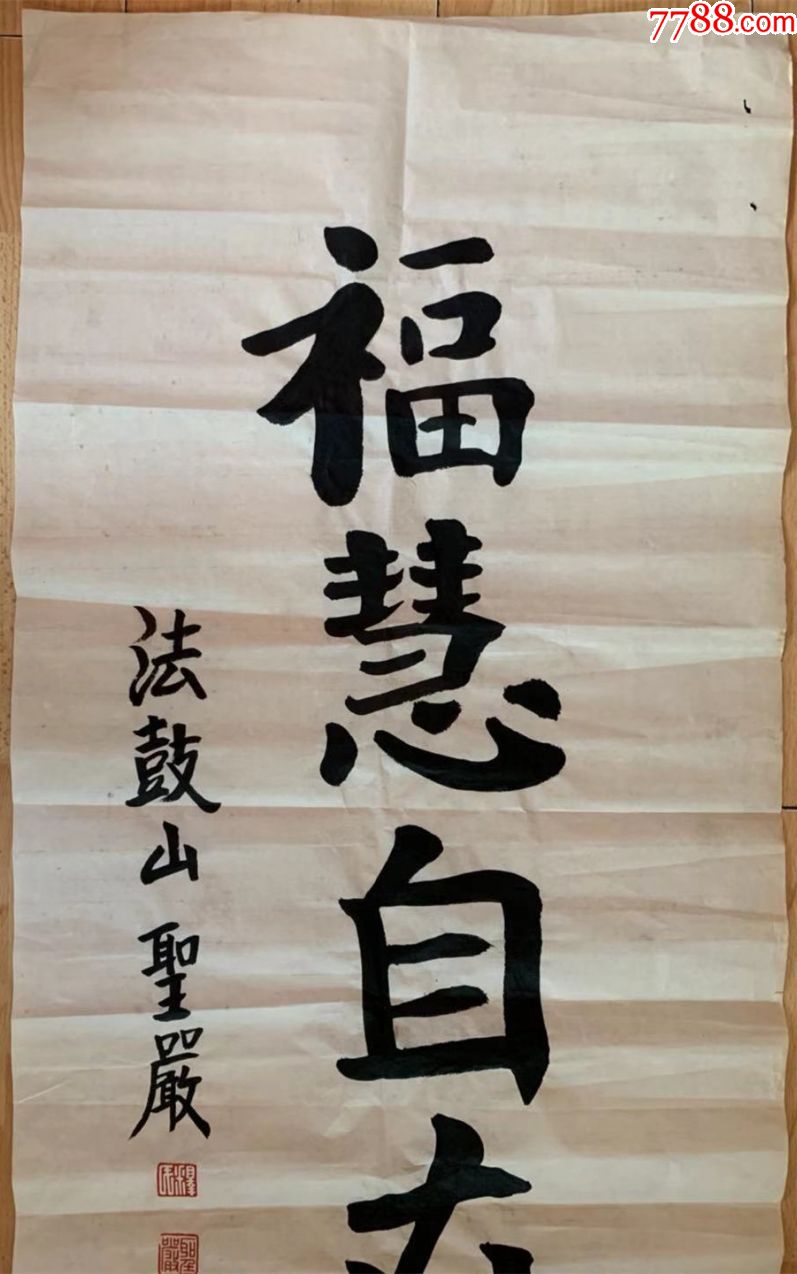 7788.com
福慧自
法鼓山 聖嚴
聖嚴